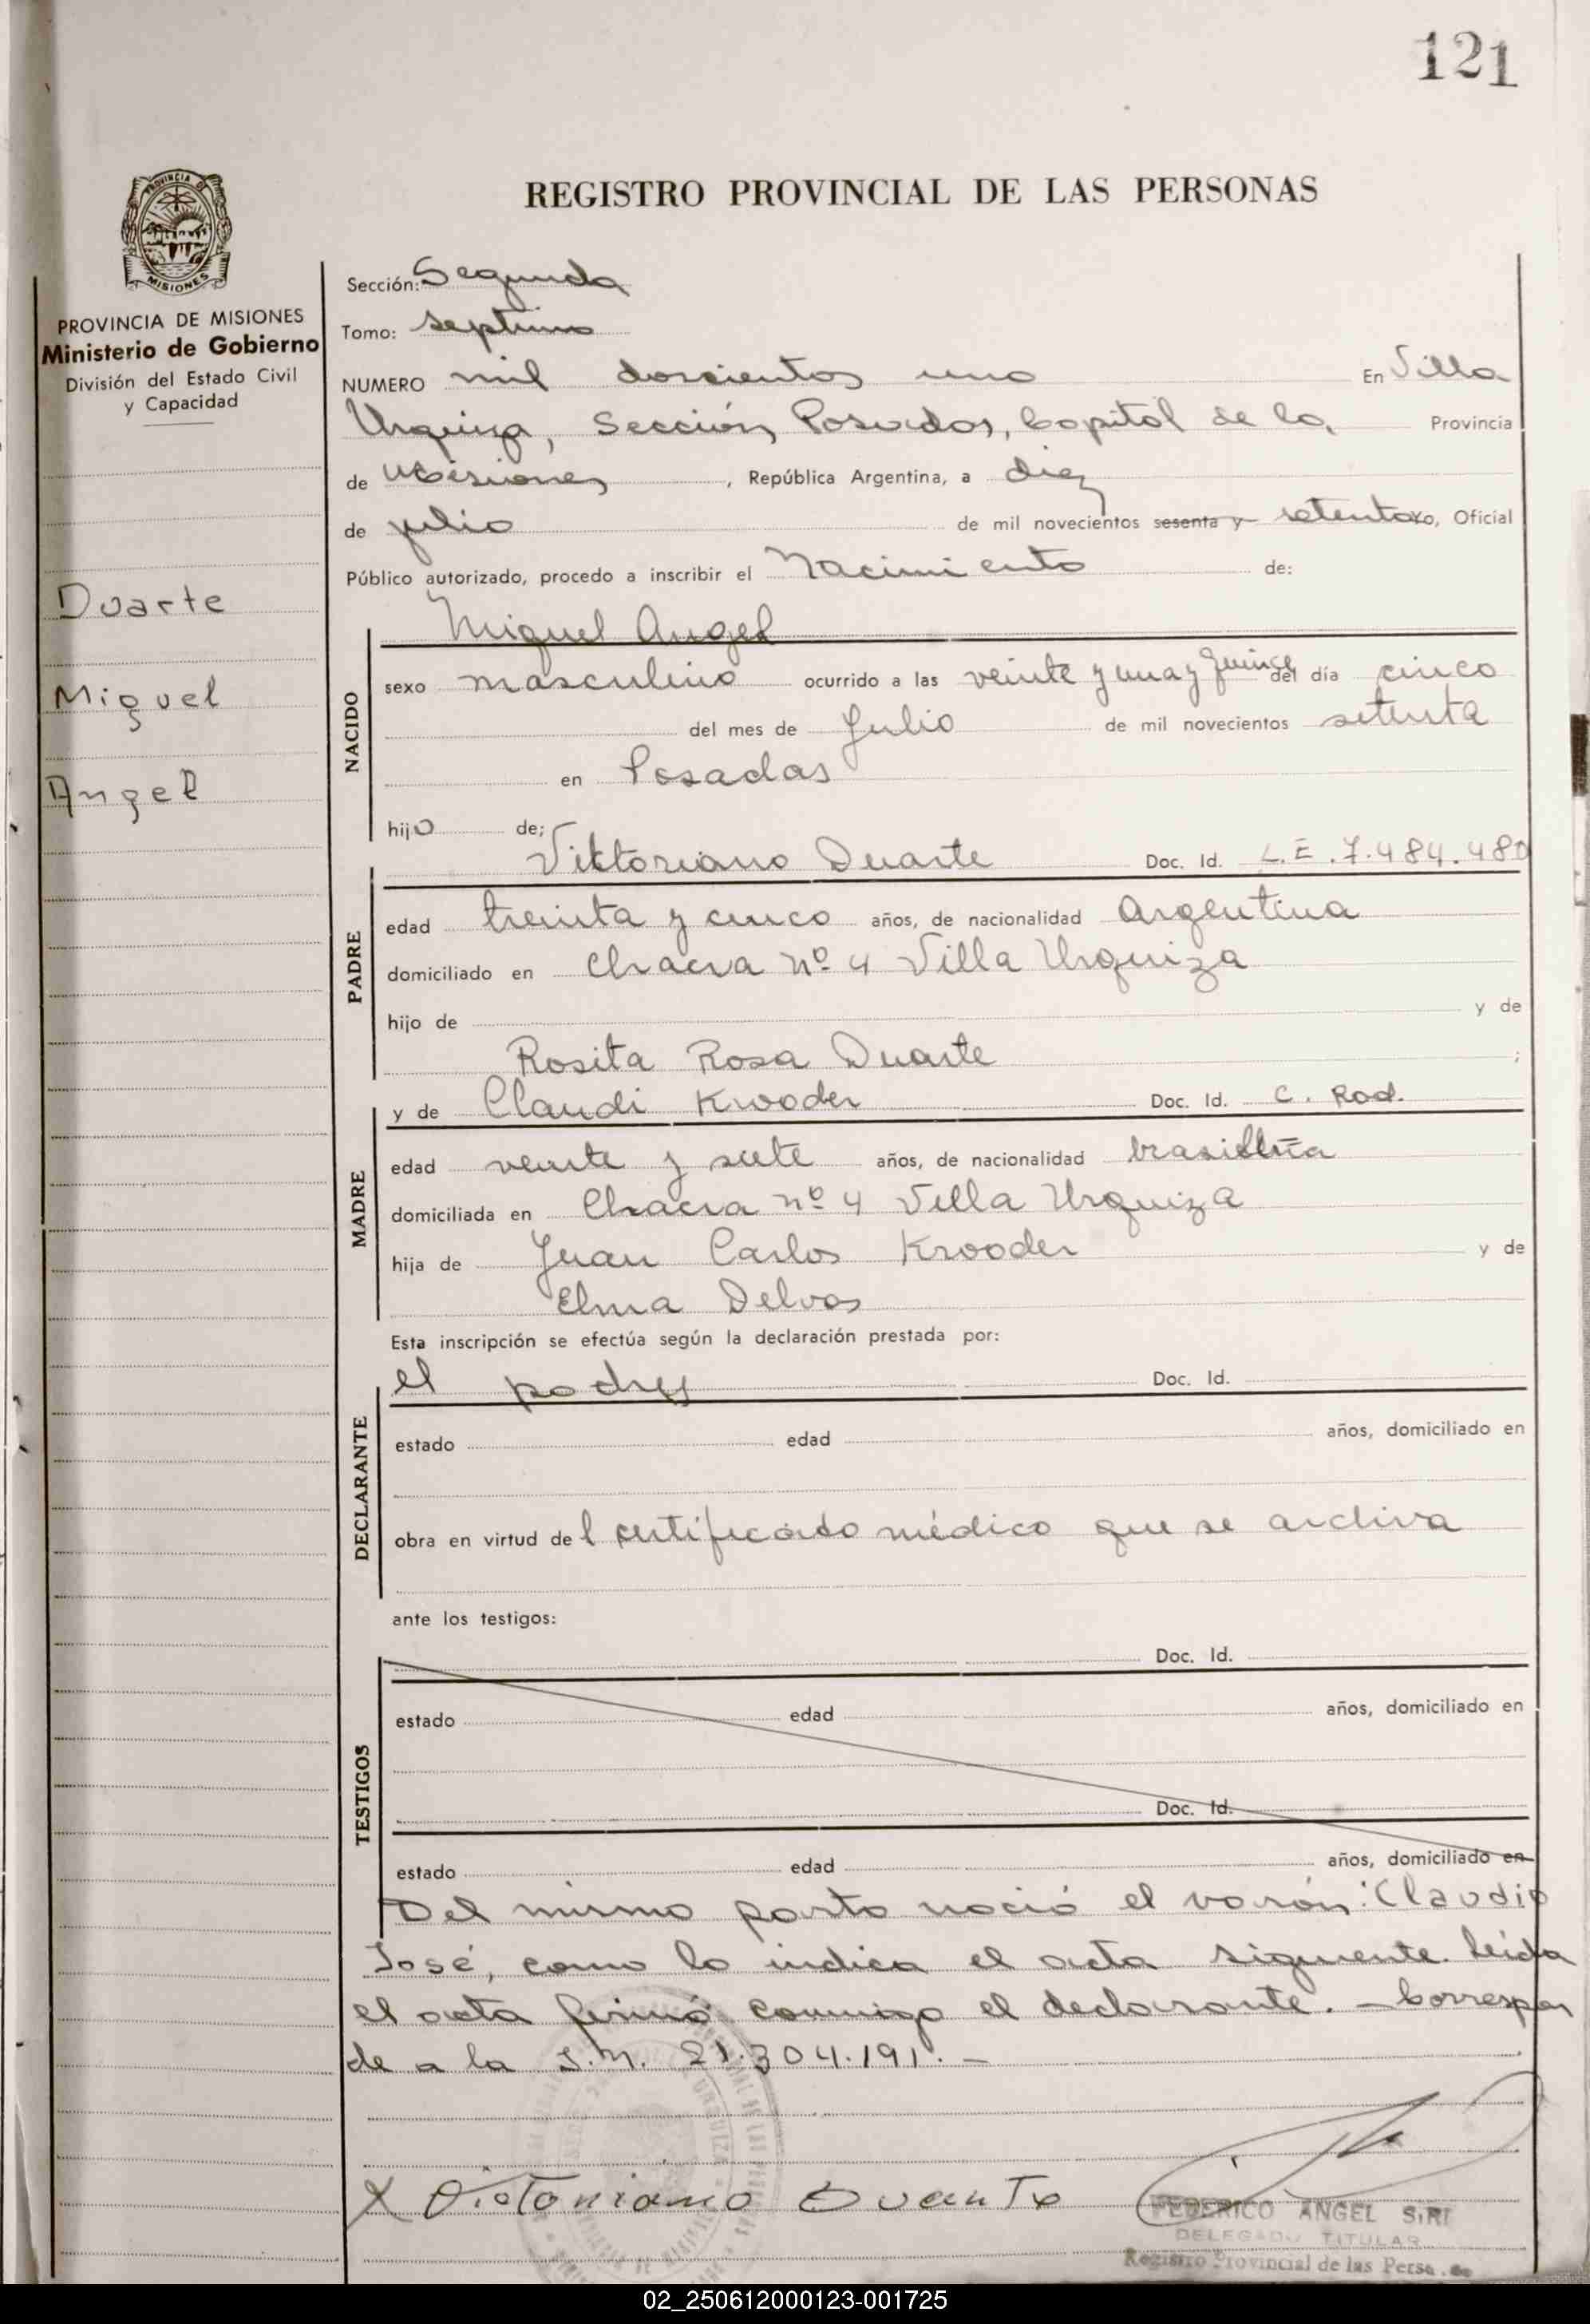 121
REGISTRO PROVINCIAL DE LAS PERSONAS
PROVINCIA DE MISIONES
Ministerio de Gobierno
División del Estado Civil
y Capacidad
Duarte
Miguel
Angel
Sección: Segunda
Tomo: septimo
NUMERO mil doscientos uno En Villa
Urquiza, Sección Posadas, Capital de la Provincia
de Misiones, República Argentina, a diez
de julio de mil novecientos sesenta y setenta yo, Oficial
Público autorizado, procedo a inscribir el Nacimiento de:
Miguel Angel
NACIDO
sexo masculino ocurrido a las veinte y una y quince del día cinco
del mes de Julio de mil novecientos setenta
en Posadas
hijo de;
Vittoriano Duarte Doc. Id. L.E. 7.484.480
PADRE
edad treinta y cinco años, de nacionalidad Argentina
domiciliado en Chacra nº 4 Villa Urquiza
hijo de y de
Rosita Rosa Duarte ;
y de Claudi Krooder Doc. Id. C. Rad.
MADRE
edad veinte y siete años, de nacionalidad
domiciliada en Chacra nº 4 Villa Urquiza
hija de Juan Carlos Krooder y de
Elma Delvas
Esta inscripción se efectúa según la declaración prestada por:
el Doc. Id.
DECLARANTE
estado edad años, domiciliado en
obra en virtud del certificado médico que se archiva
ante los testigos:
Doc. Id.
TESTIGOS
estado edad años, domiciliado en
Doc. Id.
estado edad años, domiciliado en
Del mismo parto nació el varón: Claudio
José, como lo indica el acta siguiente. Leida
el acta firmó conmigo el declarante. – Correspon
de a la I.M. 21.304.191. –
X Victoriano Duarte
FEDERICO ANGEL SIRI
DELEGADO TITULAR
Registro Provincial de las Perso
02_250612000123-001725